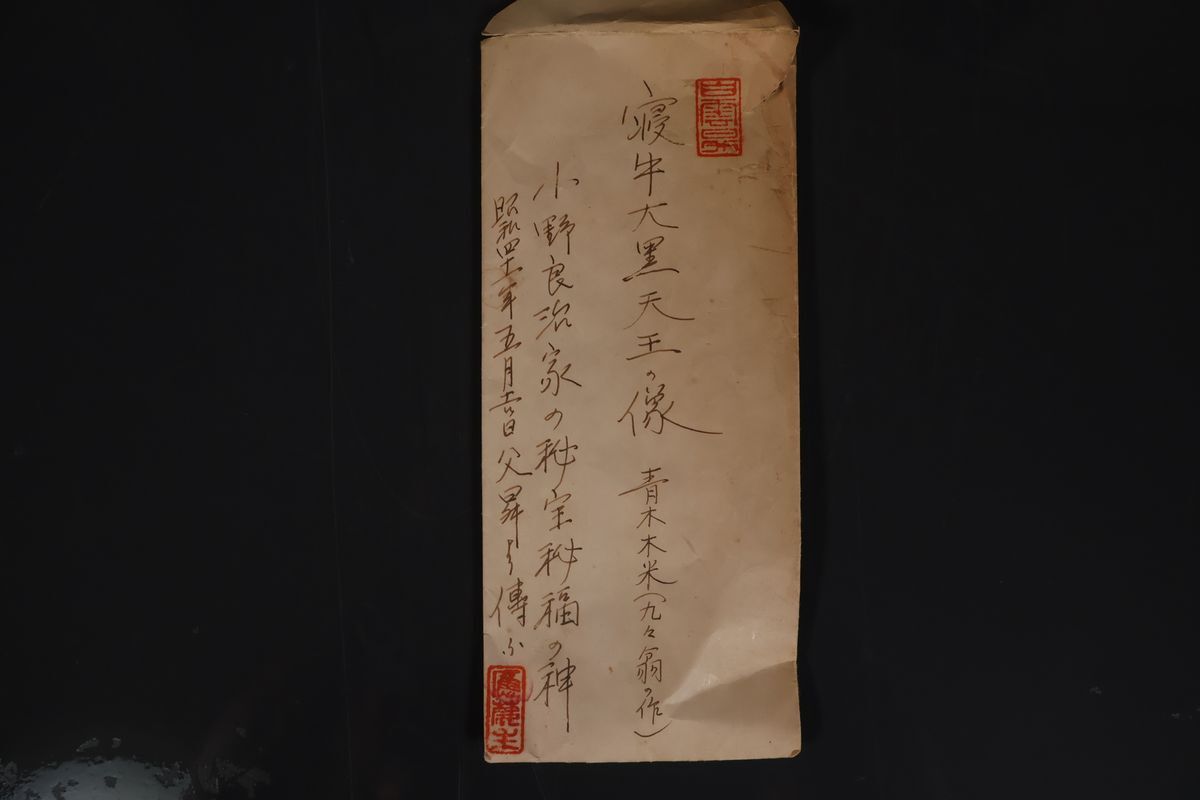 寝牛大黒天王の像 青木木米(九々翁の作)
小野良治家の秘宝秘福の神
昭和四十一年五月 日父昇より傳ふ